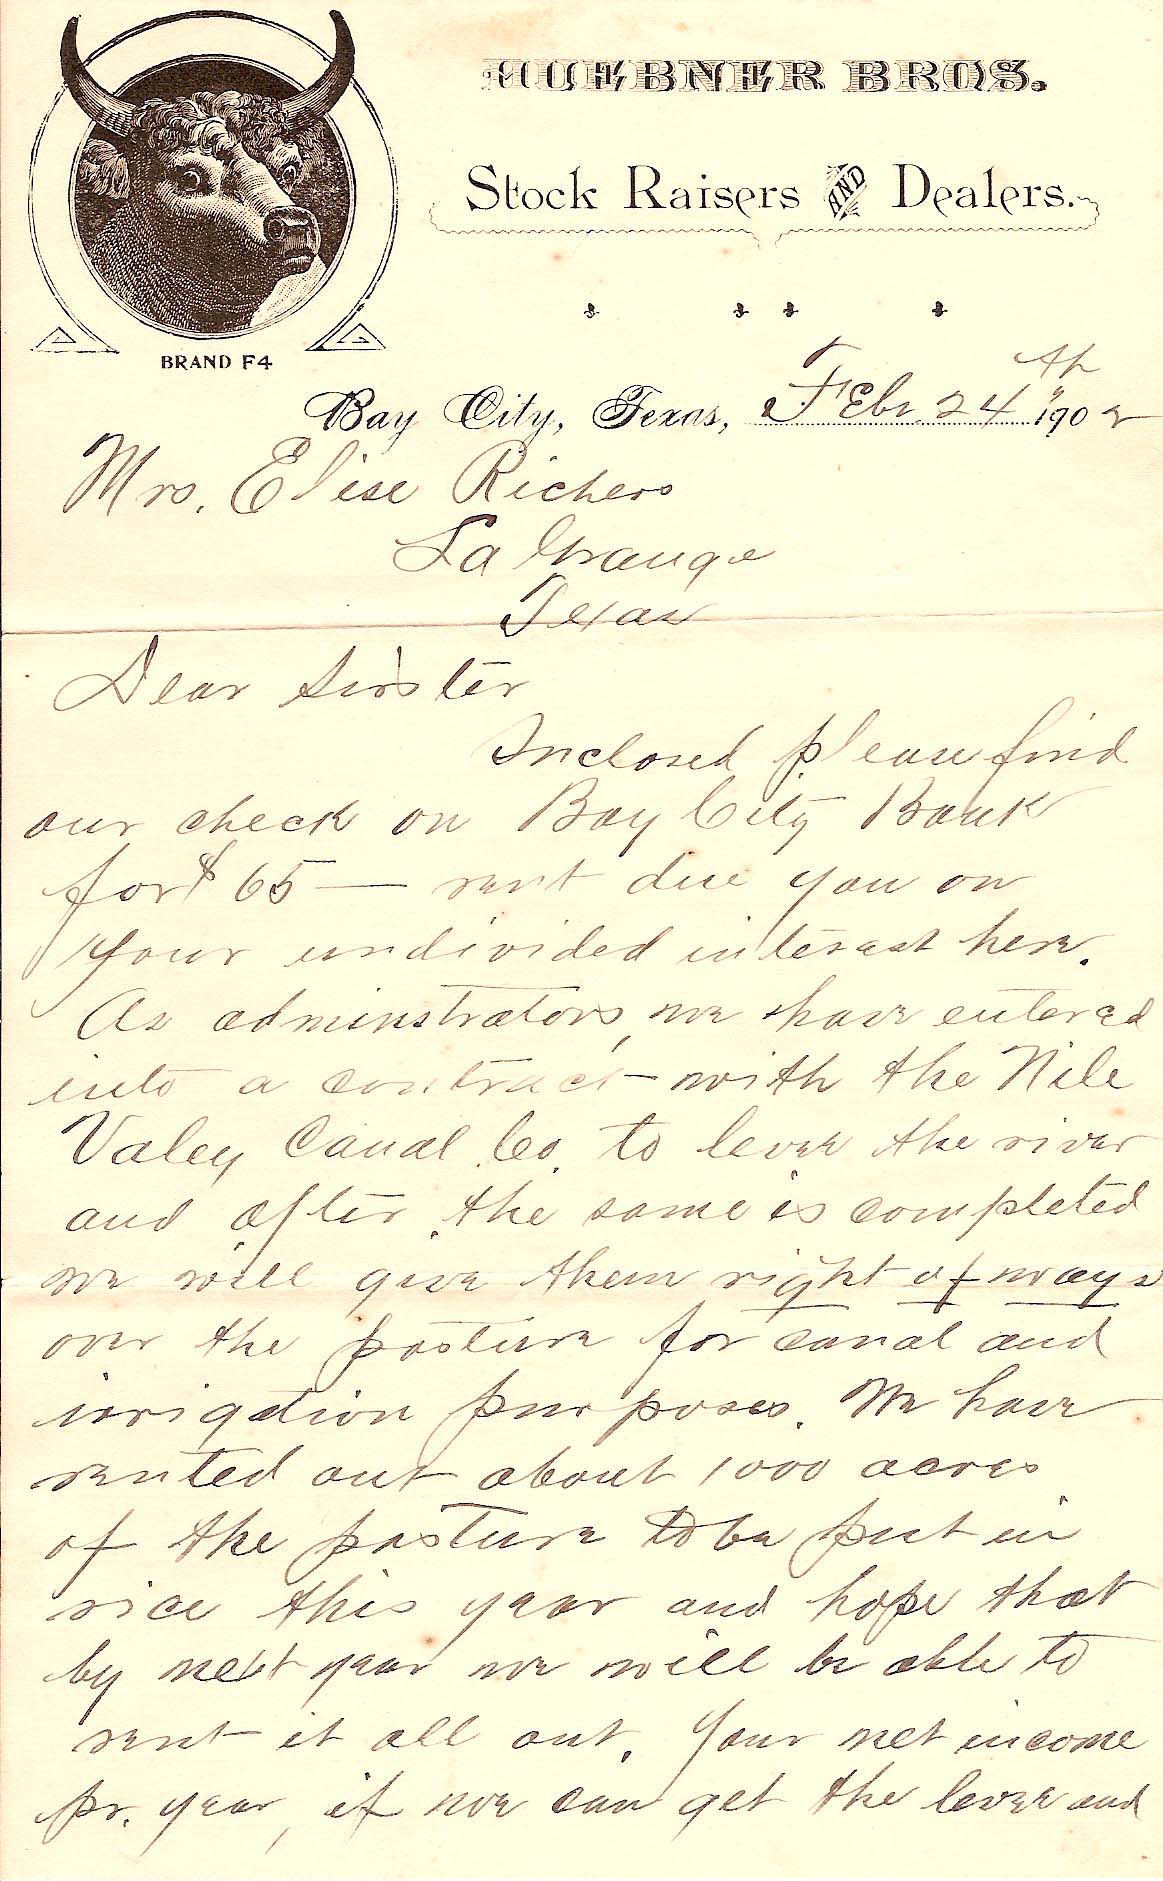 HUEBNER BROS.
Stock Raisers AND Dealers.
BRAND F4
Bay City, Texas, Febr. 24th 1902
Mrs. Elise Richers
La Grange
Texas
Dear Sister
Inclosed please find
our check on Bay City Bank
for $65— rent due you on
Your undivided interest here.
As adminstrators, we have entered
into a contract with the Nile
Valey Canal Co. to levee the river
and after the same is completed
we will give them right of ways
over the pasture for canal and
irrigation purposes. We have
rented out about 1000 acres
of the pasture to be put in
rice this year and hope that
by next year we will be able to
rent it all out. Your net income
pr. year, if we can get the levee and